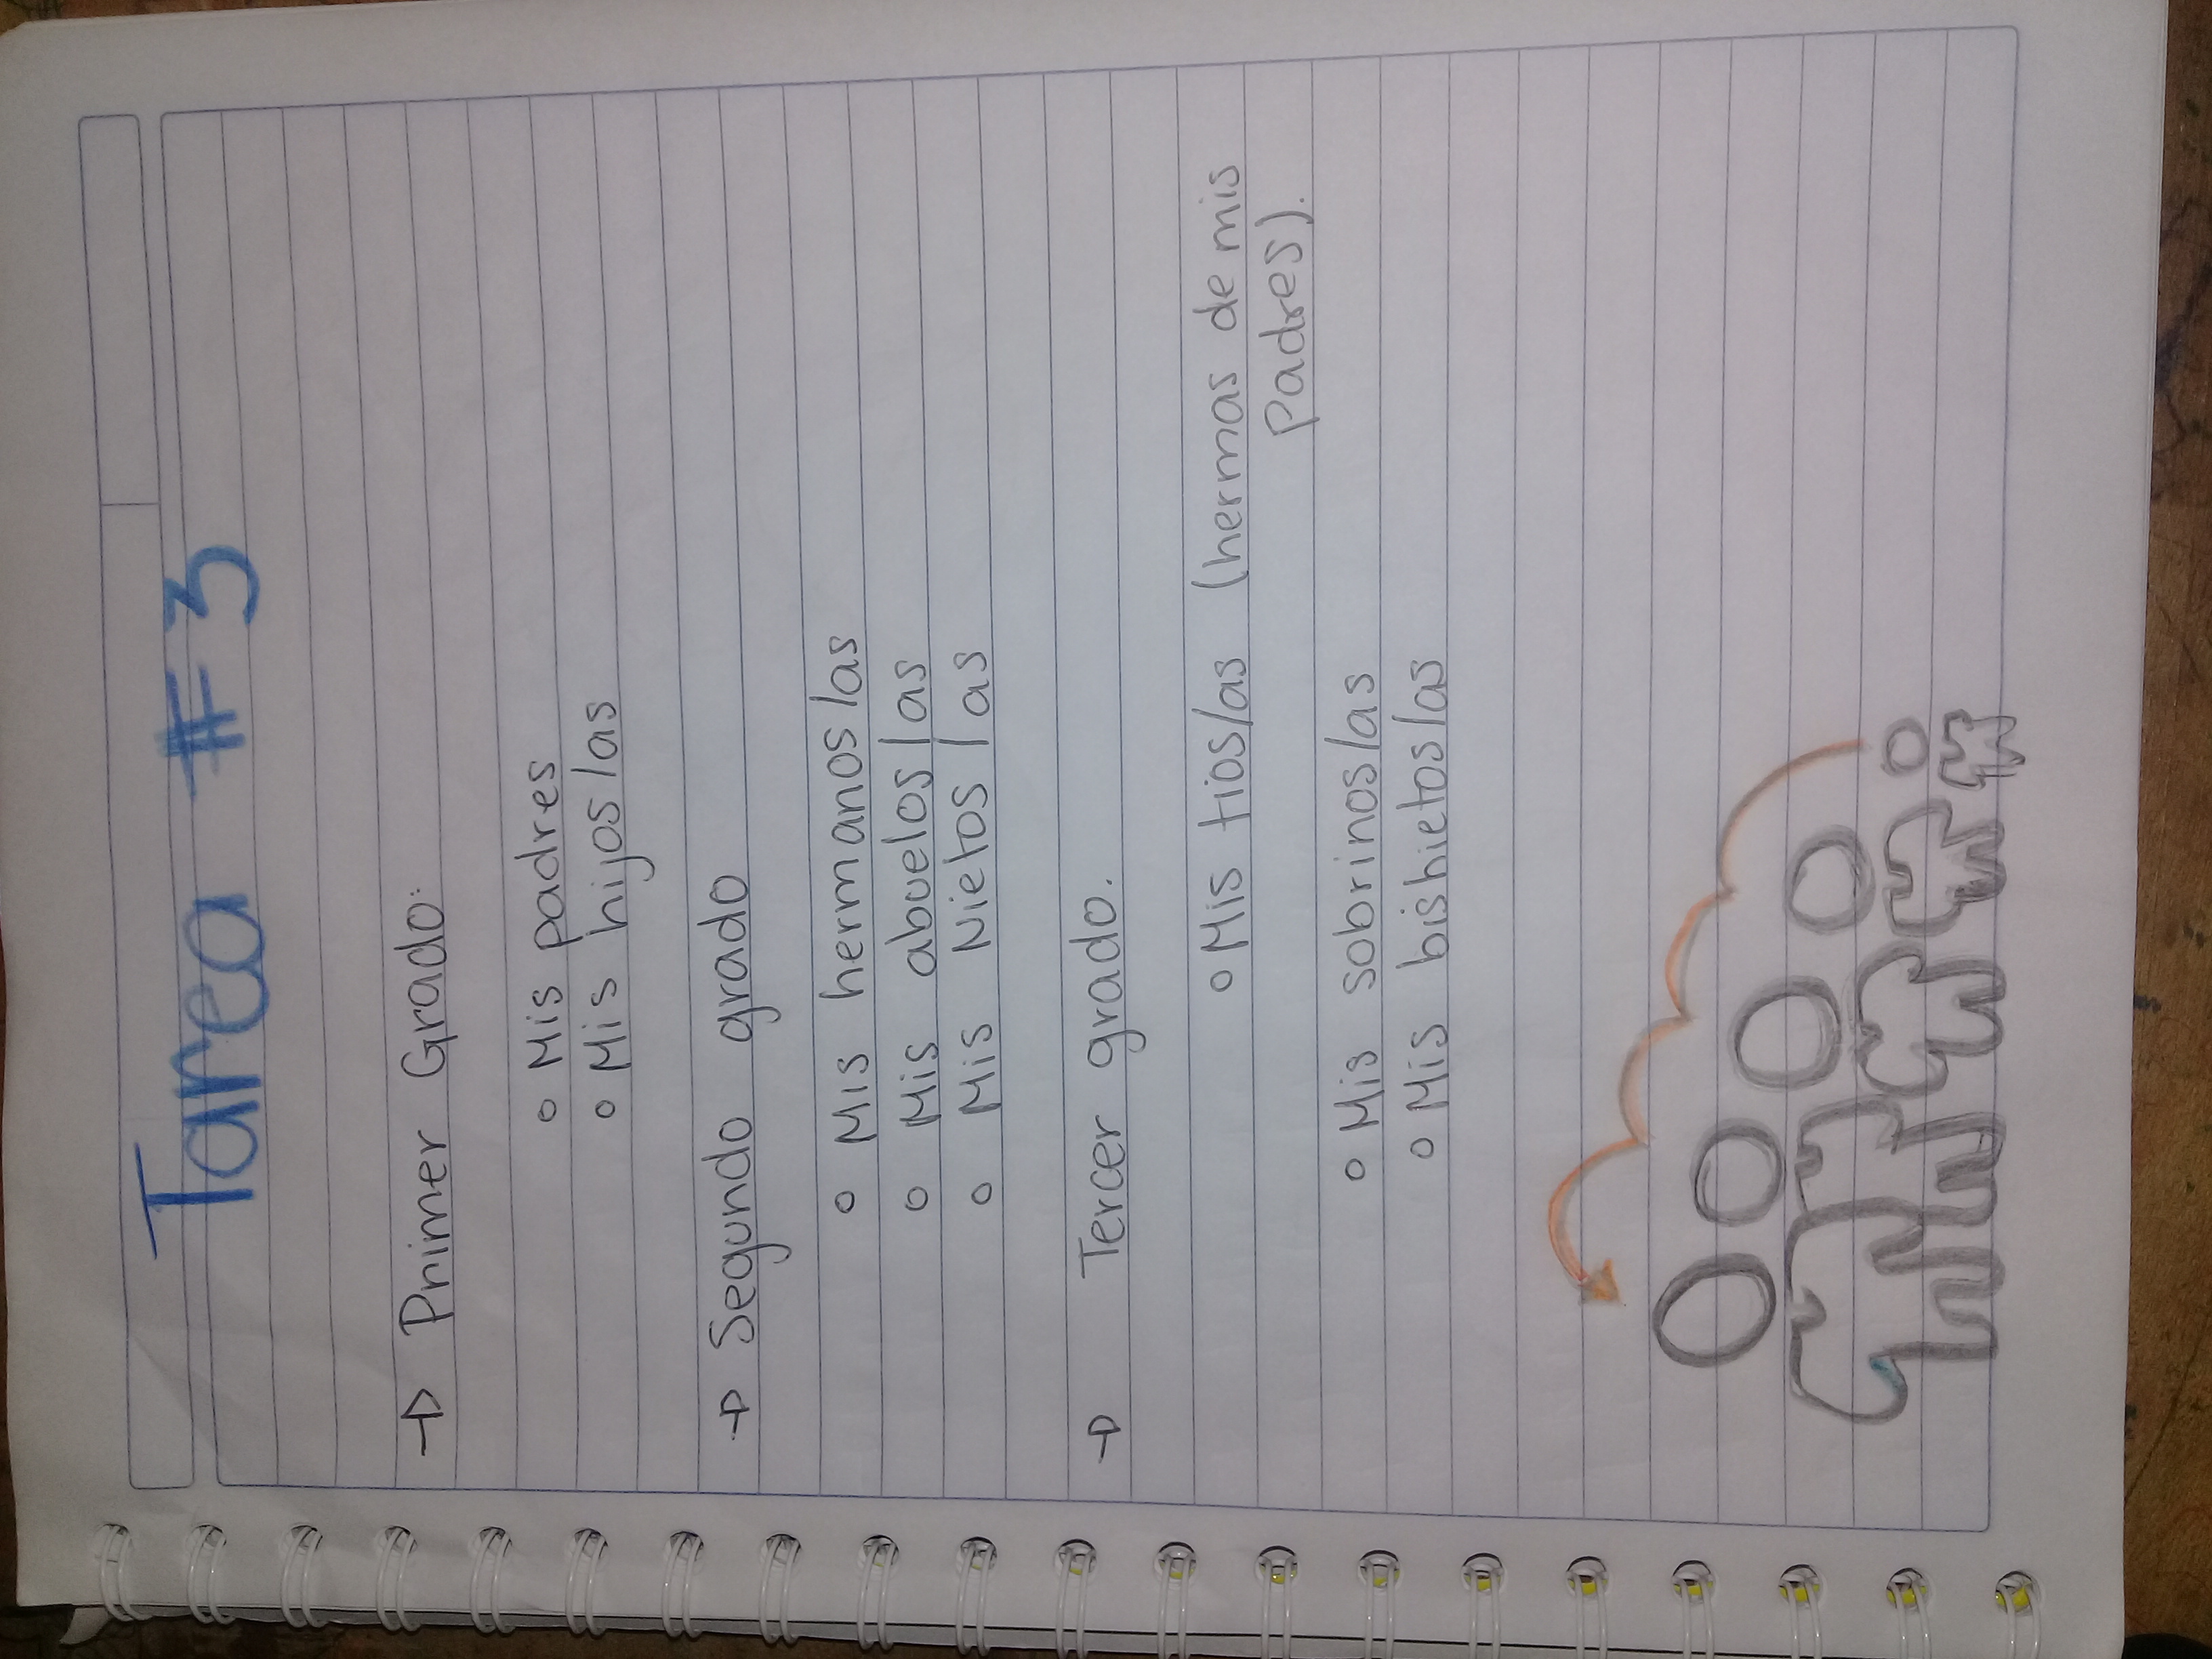 Tarea #3
→ Primer Grado:
o Mis padres
o Mis hijos/as
→ Segundo grado
o Mis hermanos/as
o Mis abuelos/as
o Mis Nietos/as
→ Tercer grado.
o Mis tios/as (hermas de mis
Padres).
o Mis sobrinos/as
o Mis bishietos/as